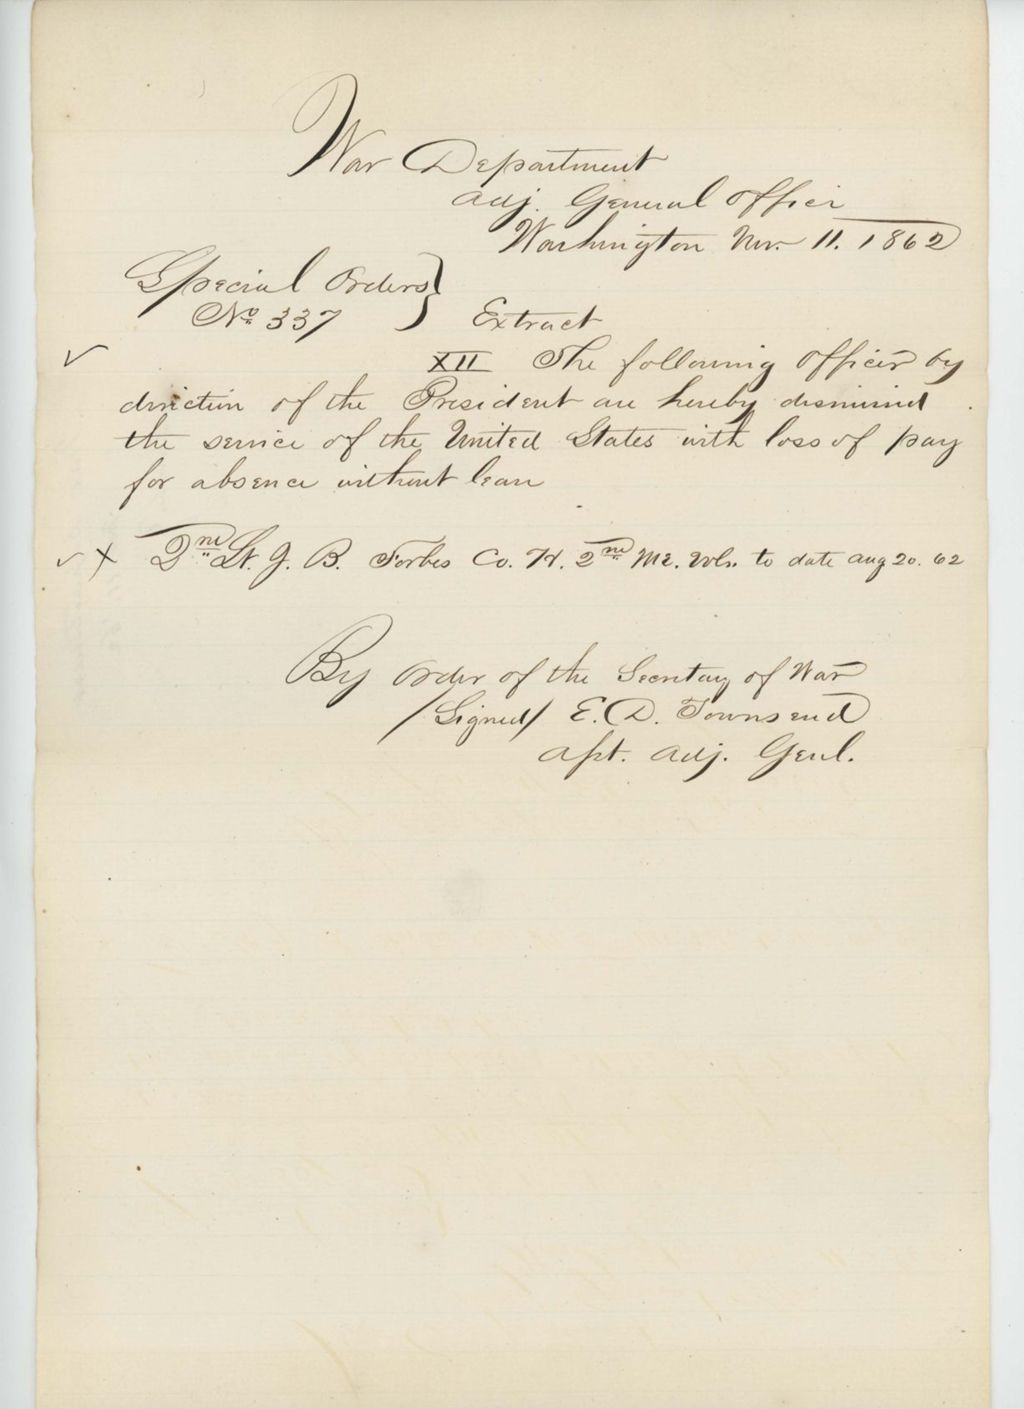 War Department
Adj. General Office
Washington Nov. 11. 1862
Special Orders }
No. 337 } Extract
XII The following Officers by
direction of the President are hereby dismissed
the service of the United States with loss of pay
for absence without leave
2nd Lt. J. B. Forbes Co. H. 2nd Me. Vols. to date Aug 20. 62
By Order of the Secretary of War
/Signed/ E. D. Townsend
Asst. Adj. Genl.